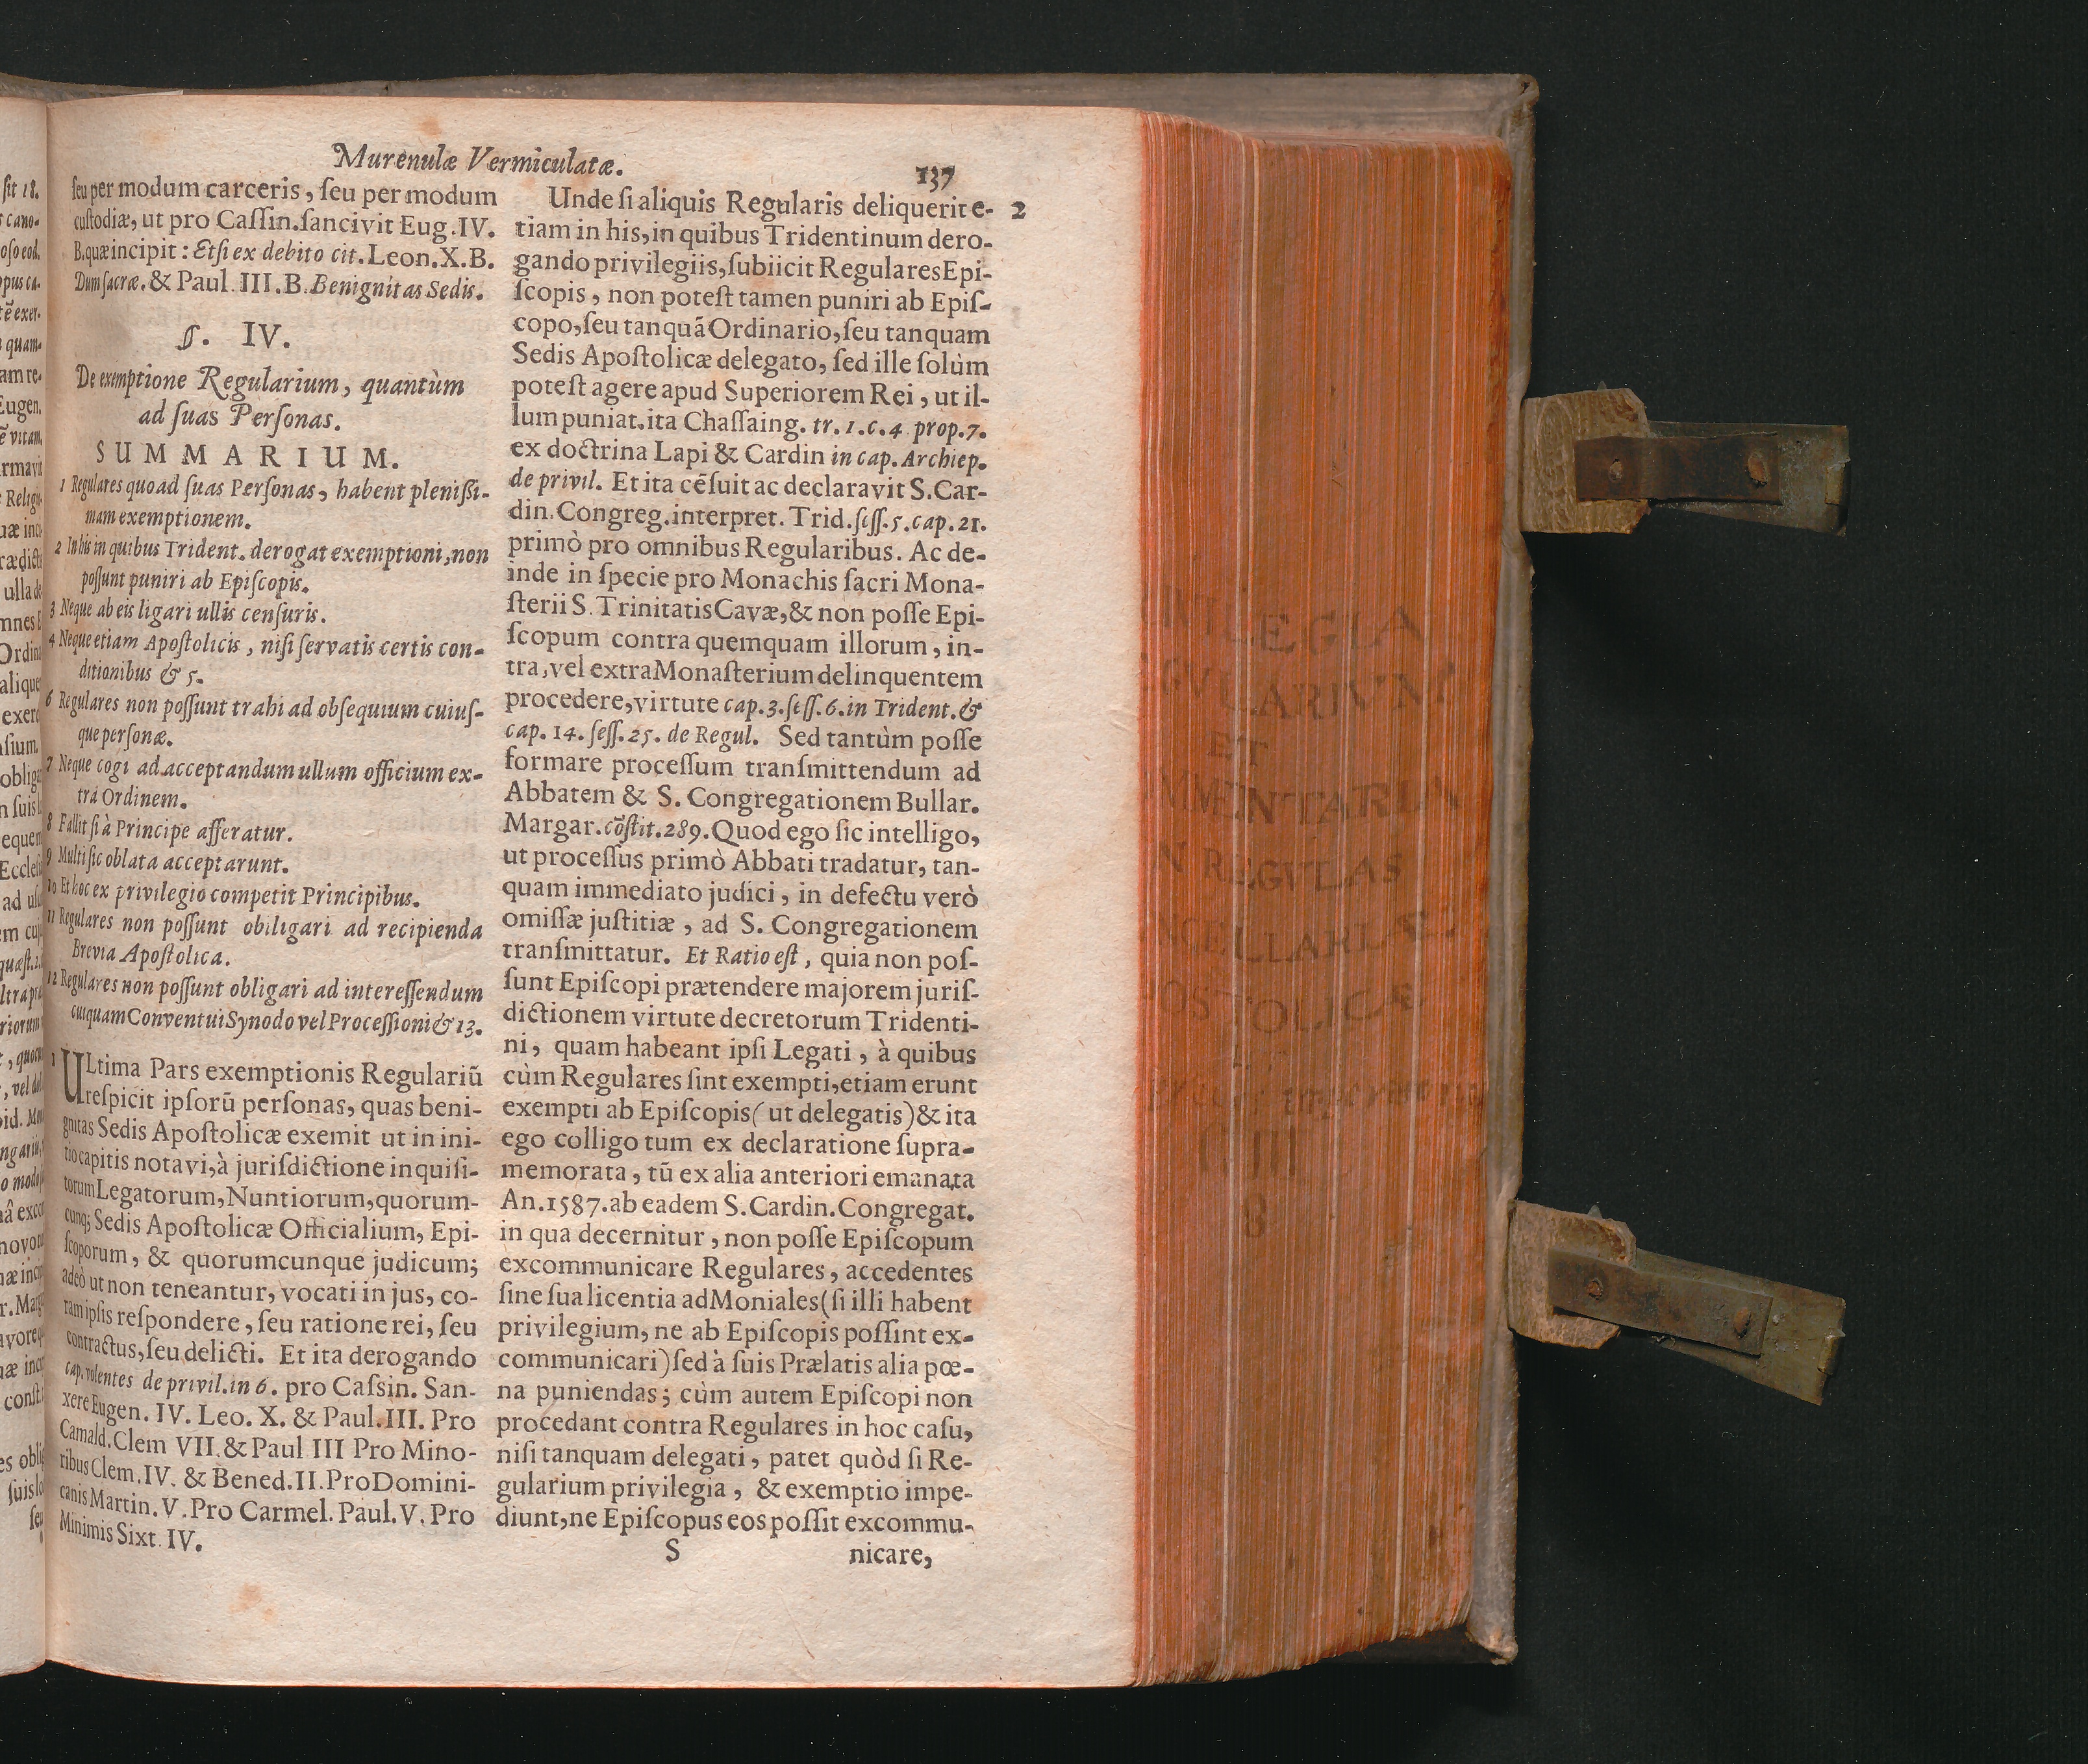 Murenulæ Vermiculatæ.
137
ſeu per modum carceris, ſeu per modum
cuſtodiæ, ut pro Caſſin. ſancivit Eug. IV.
B. quæ incipit: Etſi ex debito cit. Leon. X. B.
Dum ſacræ. & Paul. III. B. Benignitas Sedis.
§. IV.
De exemptione Regularium, quantùm
ad ſuas Perſonas.
SUMMARIUM.
1 Regulares quoad ſuas Perſonas, habent pleniſſi-
mam exemptionem.
2 In his in quibus Trident. derogat exemptioni, non
poſſunt puniri ab Epiſcopis.
3 Neque ab eis ligari ullis cenſuris.
4 Neque etiam Apoſtolicis, niſi ſervatis certis con-
ditionibus & 5.
6 Regulares non poſſunt trahi ad obſequium cuiuſ-
que perſonæ.
7 Neque cogi ad acceptandum ullum officium ex-
trà Ordinem.
8 Fallit ſi à Principe afferatur.
9 Multi ſic oblata acceptarunt.
10 Et hoc ex privilegio competit Principibus.
11 Regulares non poſſunt obiligari ad recipienda
Brevia Apoſtolica.
12 Regulares non poſſunt obligari ad intereſſendum
cuiquam Conventui Synodo vel Proceſſioni & 13.
1 ULtima Pars exemptionis Regulariū
reſpicit ipſorū perſonas, quas beni-
gnitas Sedis Apoſtolicæ exemit ut in ini-
tio capitis notavi, à juriſdictione inquiſi-
torum Legatorum, Nuntiorum, quorum-
cunq; Sedis Apoſtolicæ Officialium, Epi-
ſcoporum, & quorumcunque judicum;
adeò ut non teneantur, vocati in jus, co-
ram ipſis reſpondere, ſeu ratione rei, ſeu
contractus, ſeu delicti. Et ita derogando
cap. volentes de privil. in 6. pro Caſsin. San-
xere Eugen. IV. Leo. X. & Paul. III. Pro
Camald. Clem VII. & Paul III Pro Mino-
ribus Clem. IV. & Bened. II. Pro Domini-
canis Martin. V. Pro Carmel. Paul. V. Pro
Minimis Sixt. IV.
Unde ſi aliquis Regularis deliquerit e- 2
tiam in his, in quibus Tridentinum dero-
gando privilegiis, ſubiicit Regulares Epi-
ſcopis, non poteſt tamen puniri ab Epiſ-
copo, ſeu tanquā Ordinario, ſeu tanquam
Sedis Apoſtolicæ delegato, ſed ille ſolùm
poteſt agere apud Superiorem Rei, ut il-
lum puniat. ita Chaſſaing. tr. 1. c. 4 prop. 7.
ex doctrina Lapi & Cardin in cap. Archiep.
de privil. Et ita cēſuit ac declaravit S. Car-
din. Congreg. interpret. Trid. ſeſſ. 5. cap. 21.
primò pro omnibus Regularibus. Ac de-
inde in ſpecie pro Monachis ſacri Mona-
ſterii S. Trinitatis Cavæ, & non poſſe Epi-
ſcopum contra quemquam illorum, in-
tra, vel extra Monaſterium delinquentem
procedere, virtute cap. 3. ſeſſ. 6. in Trident. &
cap. 14. ſeſſ. 25. de Regul. Sed tantùm poſſe
formare proceſſum tranſmittendum ad
Abbatem & S. Congregationem Bullar.
Margar. cōſtit. 289. Quod ego ſic intelligo,
ut proceſſus primò Abbati tradatur, tan-
quam immediato judici, in defectu verò
omiſſæ juſtitiæ, ad S. Congregationem
tranſmittatur. Et Ratio eſt, quia non poſ-
ſunt Epiſcopi prætendere majorem juriſ-
dictionem virtute decretorum Tridenti-
ni, quam habeant ipſi Legati, à quibus
cùm Regulares ſint exempti, etiam erunt
exempti ab Epiſcopis (ut delegatis) & ita
ego colligo tum ex declaratione ſupra-
memorata, tū ex alia anteriori emanata
An. 1587. ab eadem S. Cardin. Congregat.
in qua decernitur, non poſſe Epiſcopum
excommunicare Regulares, accedentes
ſine ſua licentia ad Moniales (ſi illi habent
privilegium, ne ab Epiſcopis poſſint ex-
communicari) ſed à ſuis Prælatis alia pœ-
na puniendas; cùm autem Epiſcopi non
procedant contra Regulares in hoc caſu,
niſi tanquam delegati, patet quòd ſi Re-
gularium privilegia, & exemptio impe-
diunt, ne Epiſcopus eos poſſit excommu-
S
nicare,
ET
REGVLAS